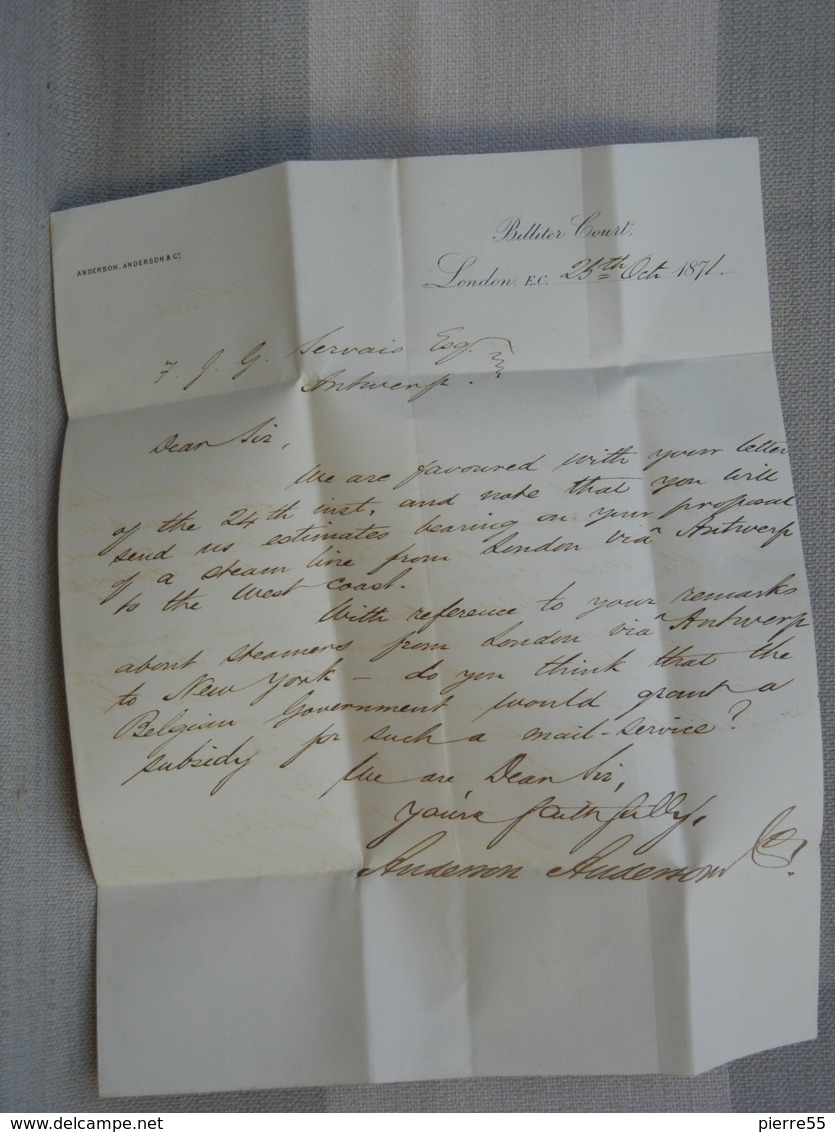 ANDERSON, ANDERSON & Co
Billiter Court,
London, E.C. 25th Oct 1871.
F. J. G. Servais Esq.
Antwerp.
Dear Sir,
We are favoured with your letter
of the 24th inst, and note that you will
send us estimates bearing on your proposal
of a steam line from London via Antwerp
to the West Coast.
With reference to your remarks
about steamers from London via Antwerp
to New York – do you think that the
Belgian Government would grant a
subsidy for such a mail-service?
We are, Dear Sir,
Yours faithfully,
Anderson Anderson & Co.
www.delcampe.net
pierre55